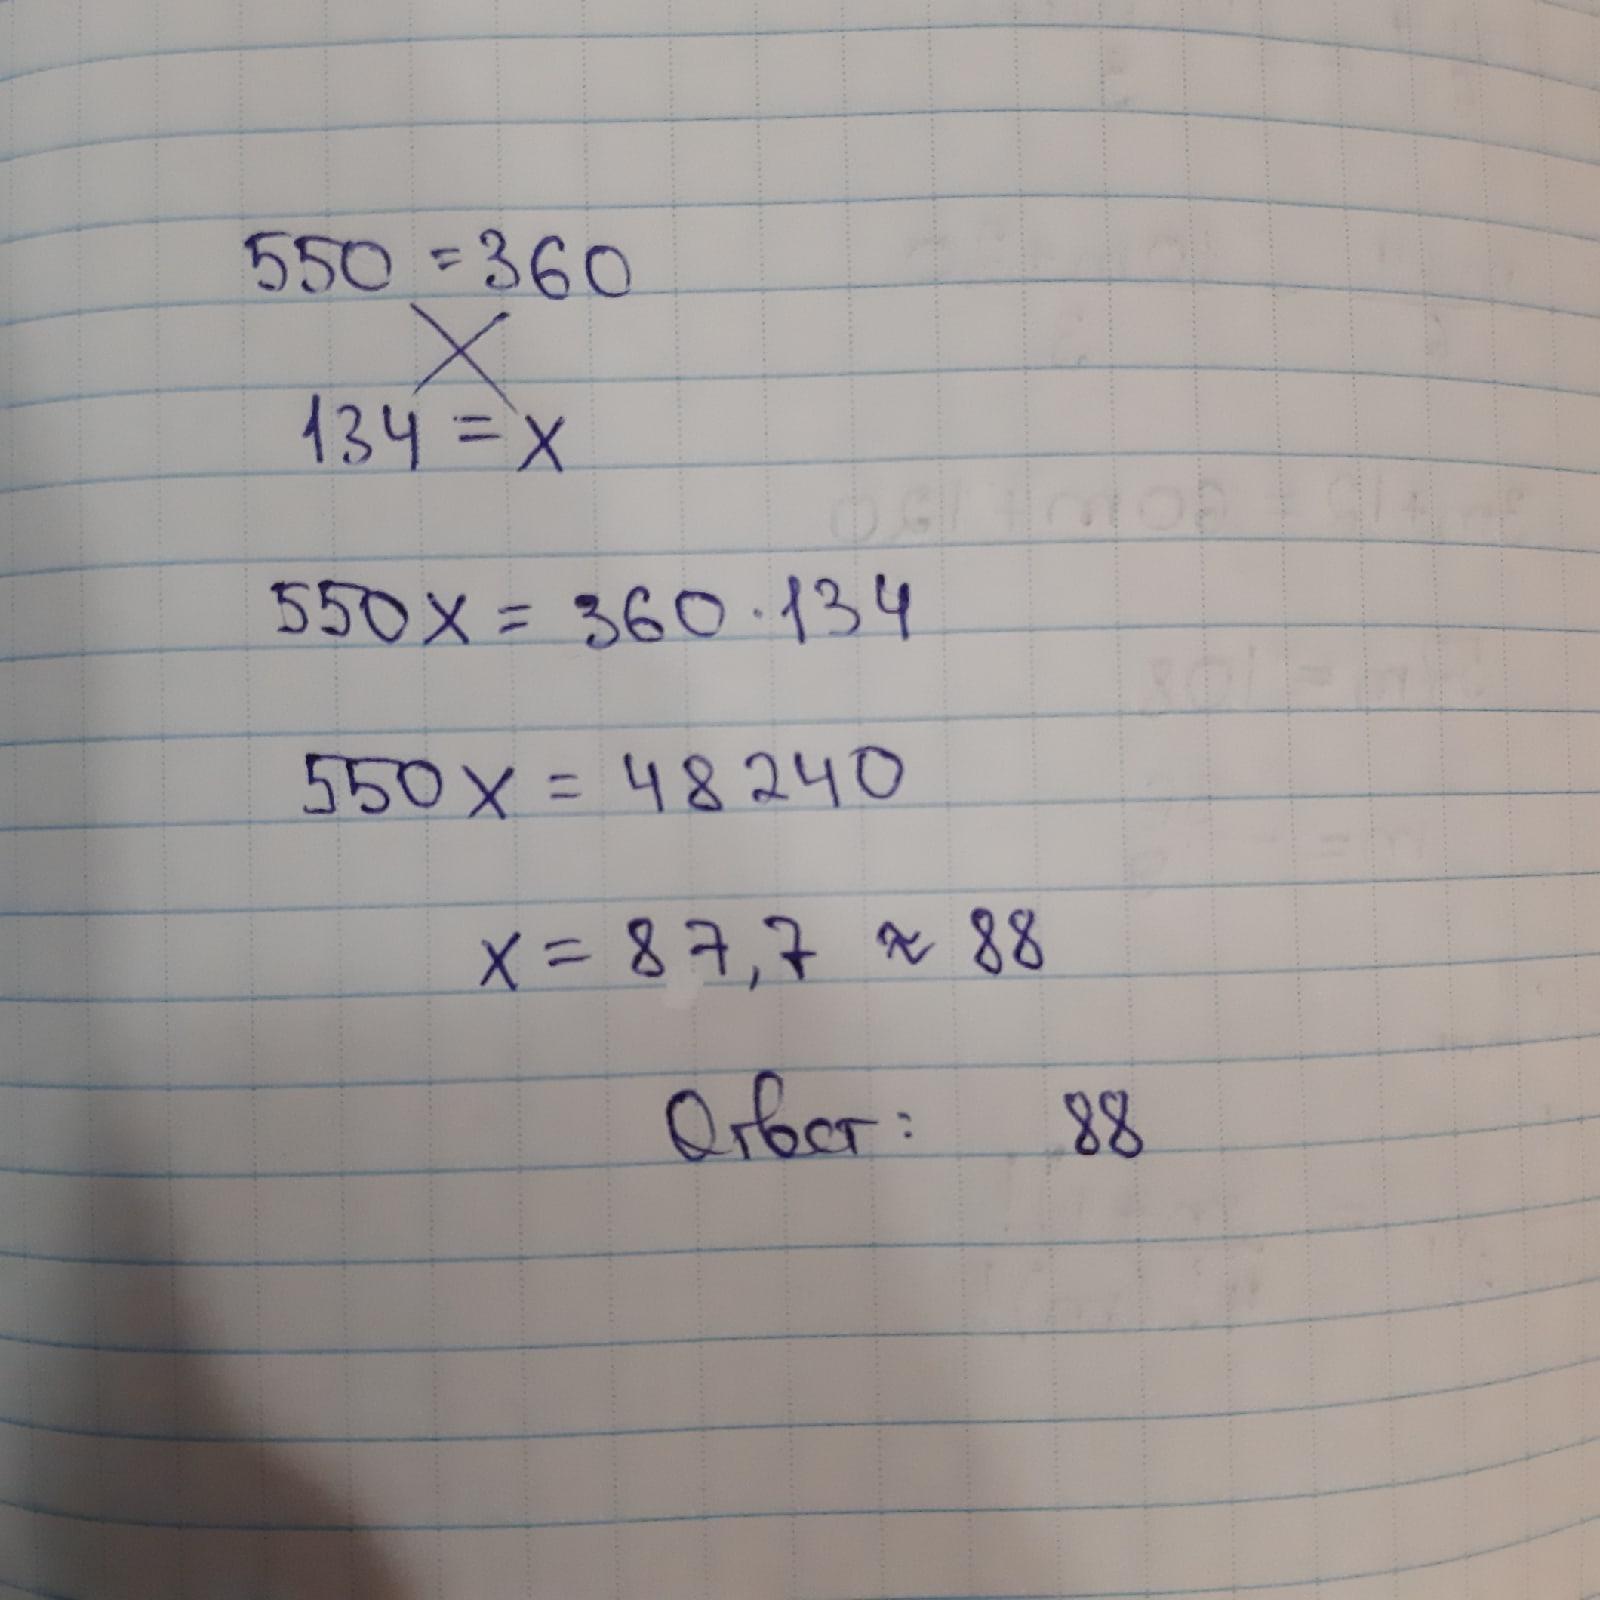 550 = 360
134 = x
550x = 360 · 134
550x = 48240
x = 87,7 ≈ 88
Ответ: 88